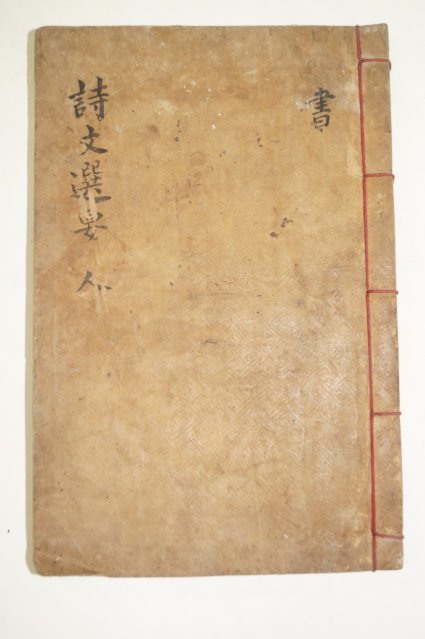 書
詩文選要 人